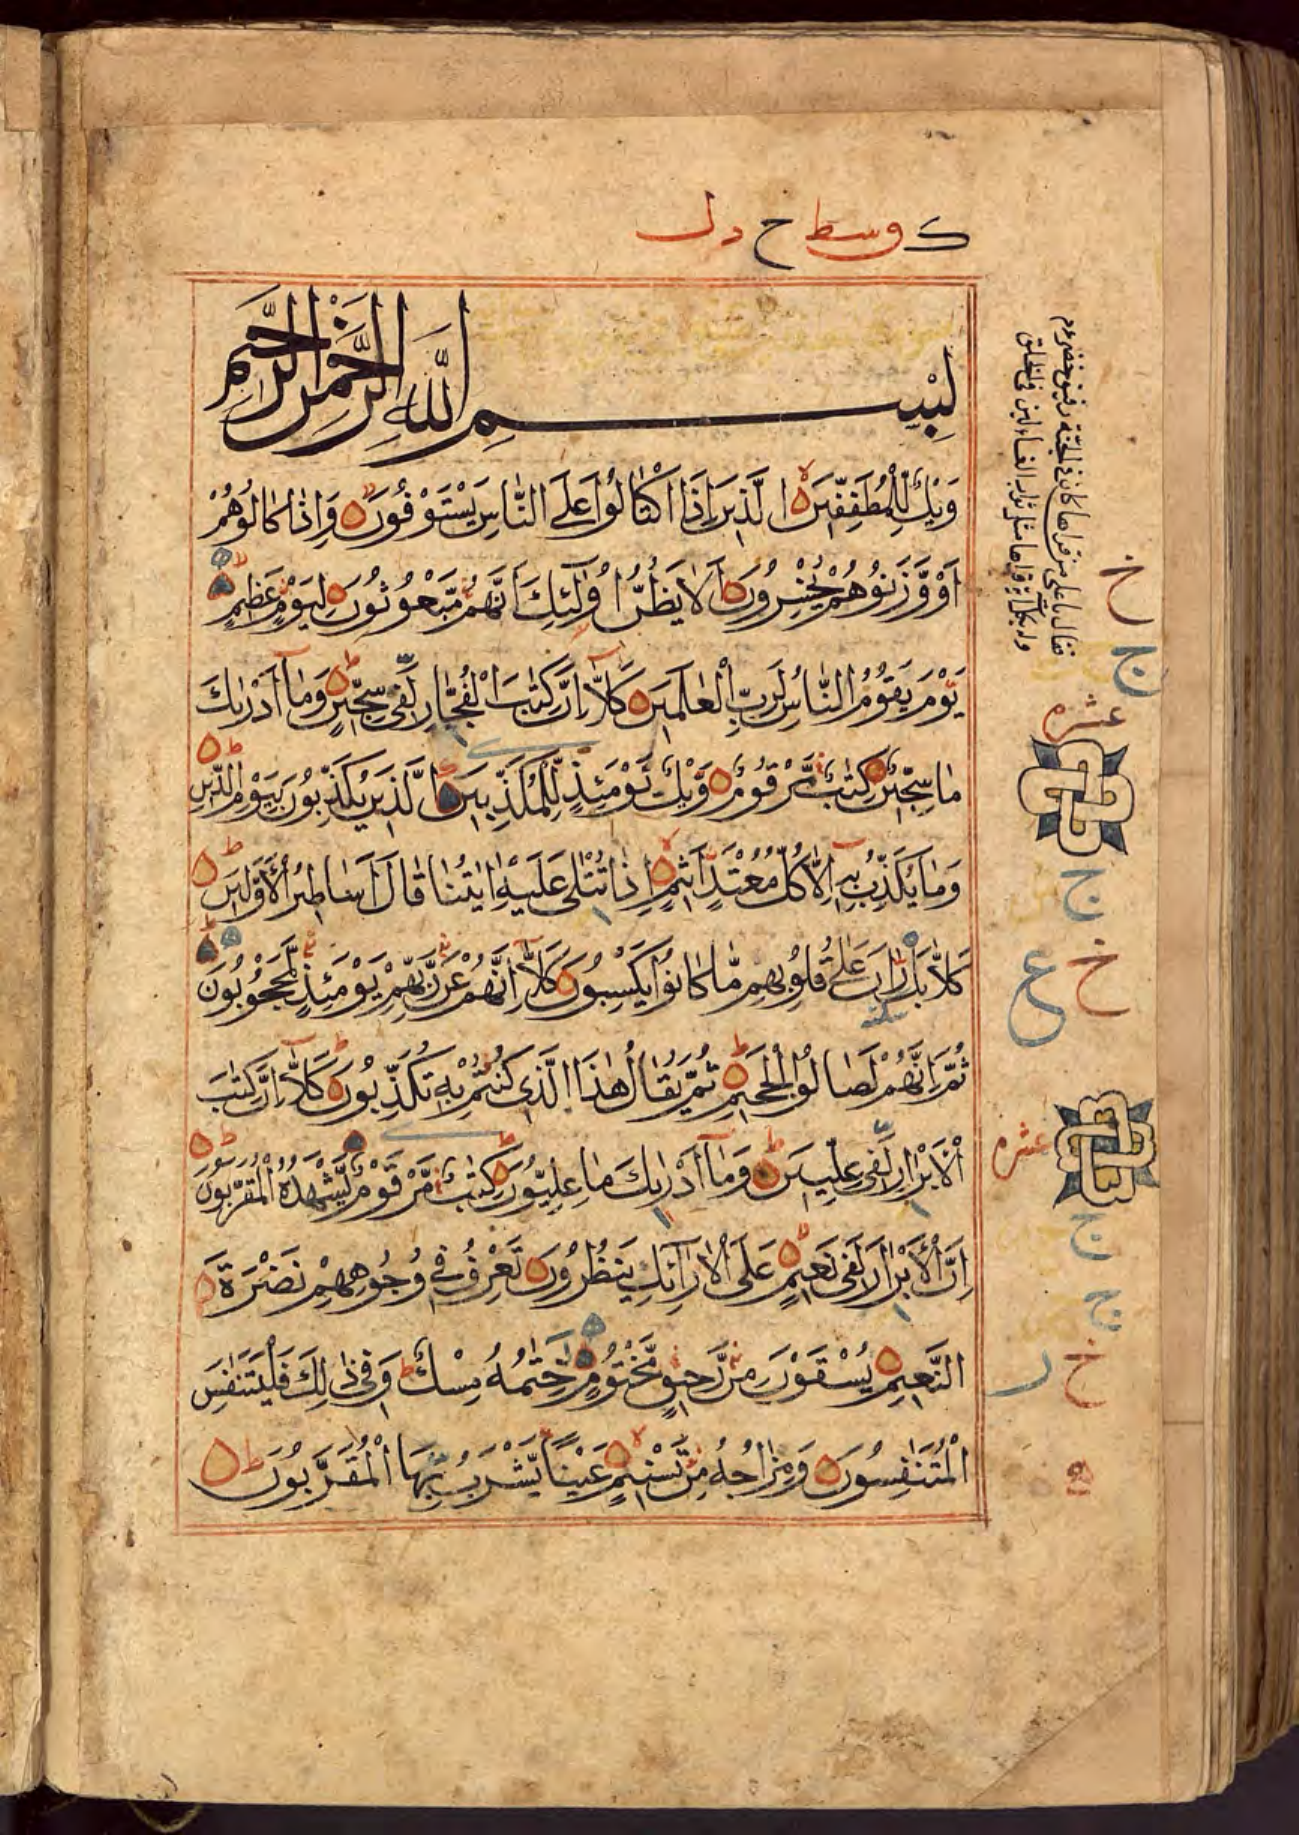 ك وسط ح دل
بِسْمِ اللَّهِ الرَّحْمٰنِ الرَّحِيمِ
وَيْلٌ لِّلْمُطَفِّفِينَ الَّذِينَ إِذَا اكْتَالُوا عَلَى النَّاسِ يَسْتَوْفُونَ وَإِذَا كَالُوهُمْ
أَوْ وَّزَنُوهُمْ يُخْسِرُونَ أَلَا يَظُنُّ أُولٰئِكَ أَنَّهُمْ مَّبْعُوثُونَ لِيَوْمٍ عَظِيمٍ
يَوْمَ يَقُومُ النَّاسُ لِرَبِّ الْعَالَمِينَ كَلَّا إِنَّ كِتٰبَ الْفُجَّارِ لَفِي سِجِّينٍ وَمَا أَدْرٰىكَ
مَا سِجِّينٌ كِتٰبٌ مَّرْقُومٌ وَّيْلٌ يَّوْمَئِذٍ لِّلْمُكَذِّبِينَ الَّذِينَ يُكَذِّبُونَ بِيَوْمِ الدِّينِ
وَمَا يُكَذِّبُ بِهِ إِلَّا كُلُّ مُعْتَدٍ أَثِيمٍ إِذَا تُتْلٰى عَلَيْهِ اٰيٰتُنَا قَالَ أَسَاطِيرُ الْأَوَّلِينَ
كَلَّا بَلْ رَانَ عَلٰى قُلُوبِهِمْ مَّا كَانُوا يَكْسِبُونَ كَلَّا إِنَّهُمْ عَنْ رَّبِّهِمْ يَوْمَئِذٍ لَّمَحْجُوبُونَ
سكته
ثُمَّ إِنَّهُمْ لَصَالُوا الْجَحِيمِ ثُمَّ يُقَالُ هٰذَا الَّذِي كُنْتُمْ بِهِ تُكَذِّبُونَ كَلَّا إِنَّ كِتٰبَ
الْأَبْرَارِ لَفِي عِلِّيِّينَ وَمَا أَدْرٰىكَ مَا عِلِّيُّونَ كِتٰبٌ مَّرْقُومٌ يَّشْهَدُهُ الْمُقَرَّبُونَ
إِنَّ الْأَبْرَارَ لَفِي نَعِيمٍ عَلَى الْأَرَائِكِ يَنْظُرُونَ تَعْرِفُ فِي وُجُوهِهِمْ نَضْرَةَ
النَّعِيمِ يُسْقَوْنَ مِنْ رَّحِيقٍ مَّخْتُومٍ خِتٰمُهُ مِسْكٌ وَفِي ذٰلِكَ فَلْيَتَنَافَسِ
الْمُتَنَافِسُونَ وَمِزَاجُهُ مِنْ تَسْنِيمٍ عَيْنًا يَّشْرَبُ بِهَا الْمُقَرَّبُونَ
خ
ج
عشره
ج
خ
ع
عشره
ج
ج
خ
ر